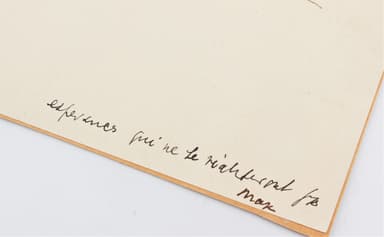 esperances qui ne se réaliseront pas
Max